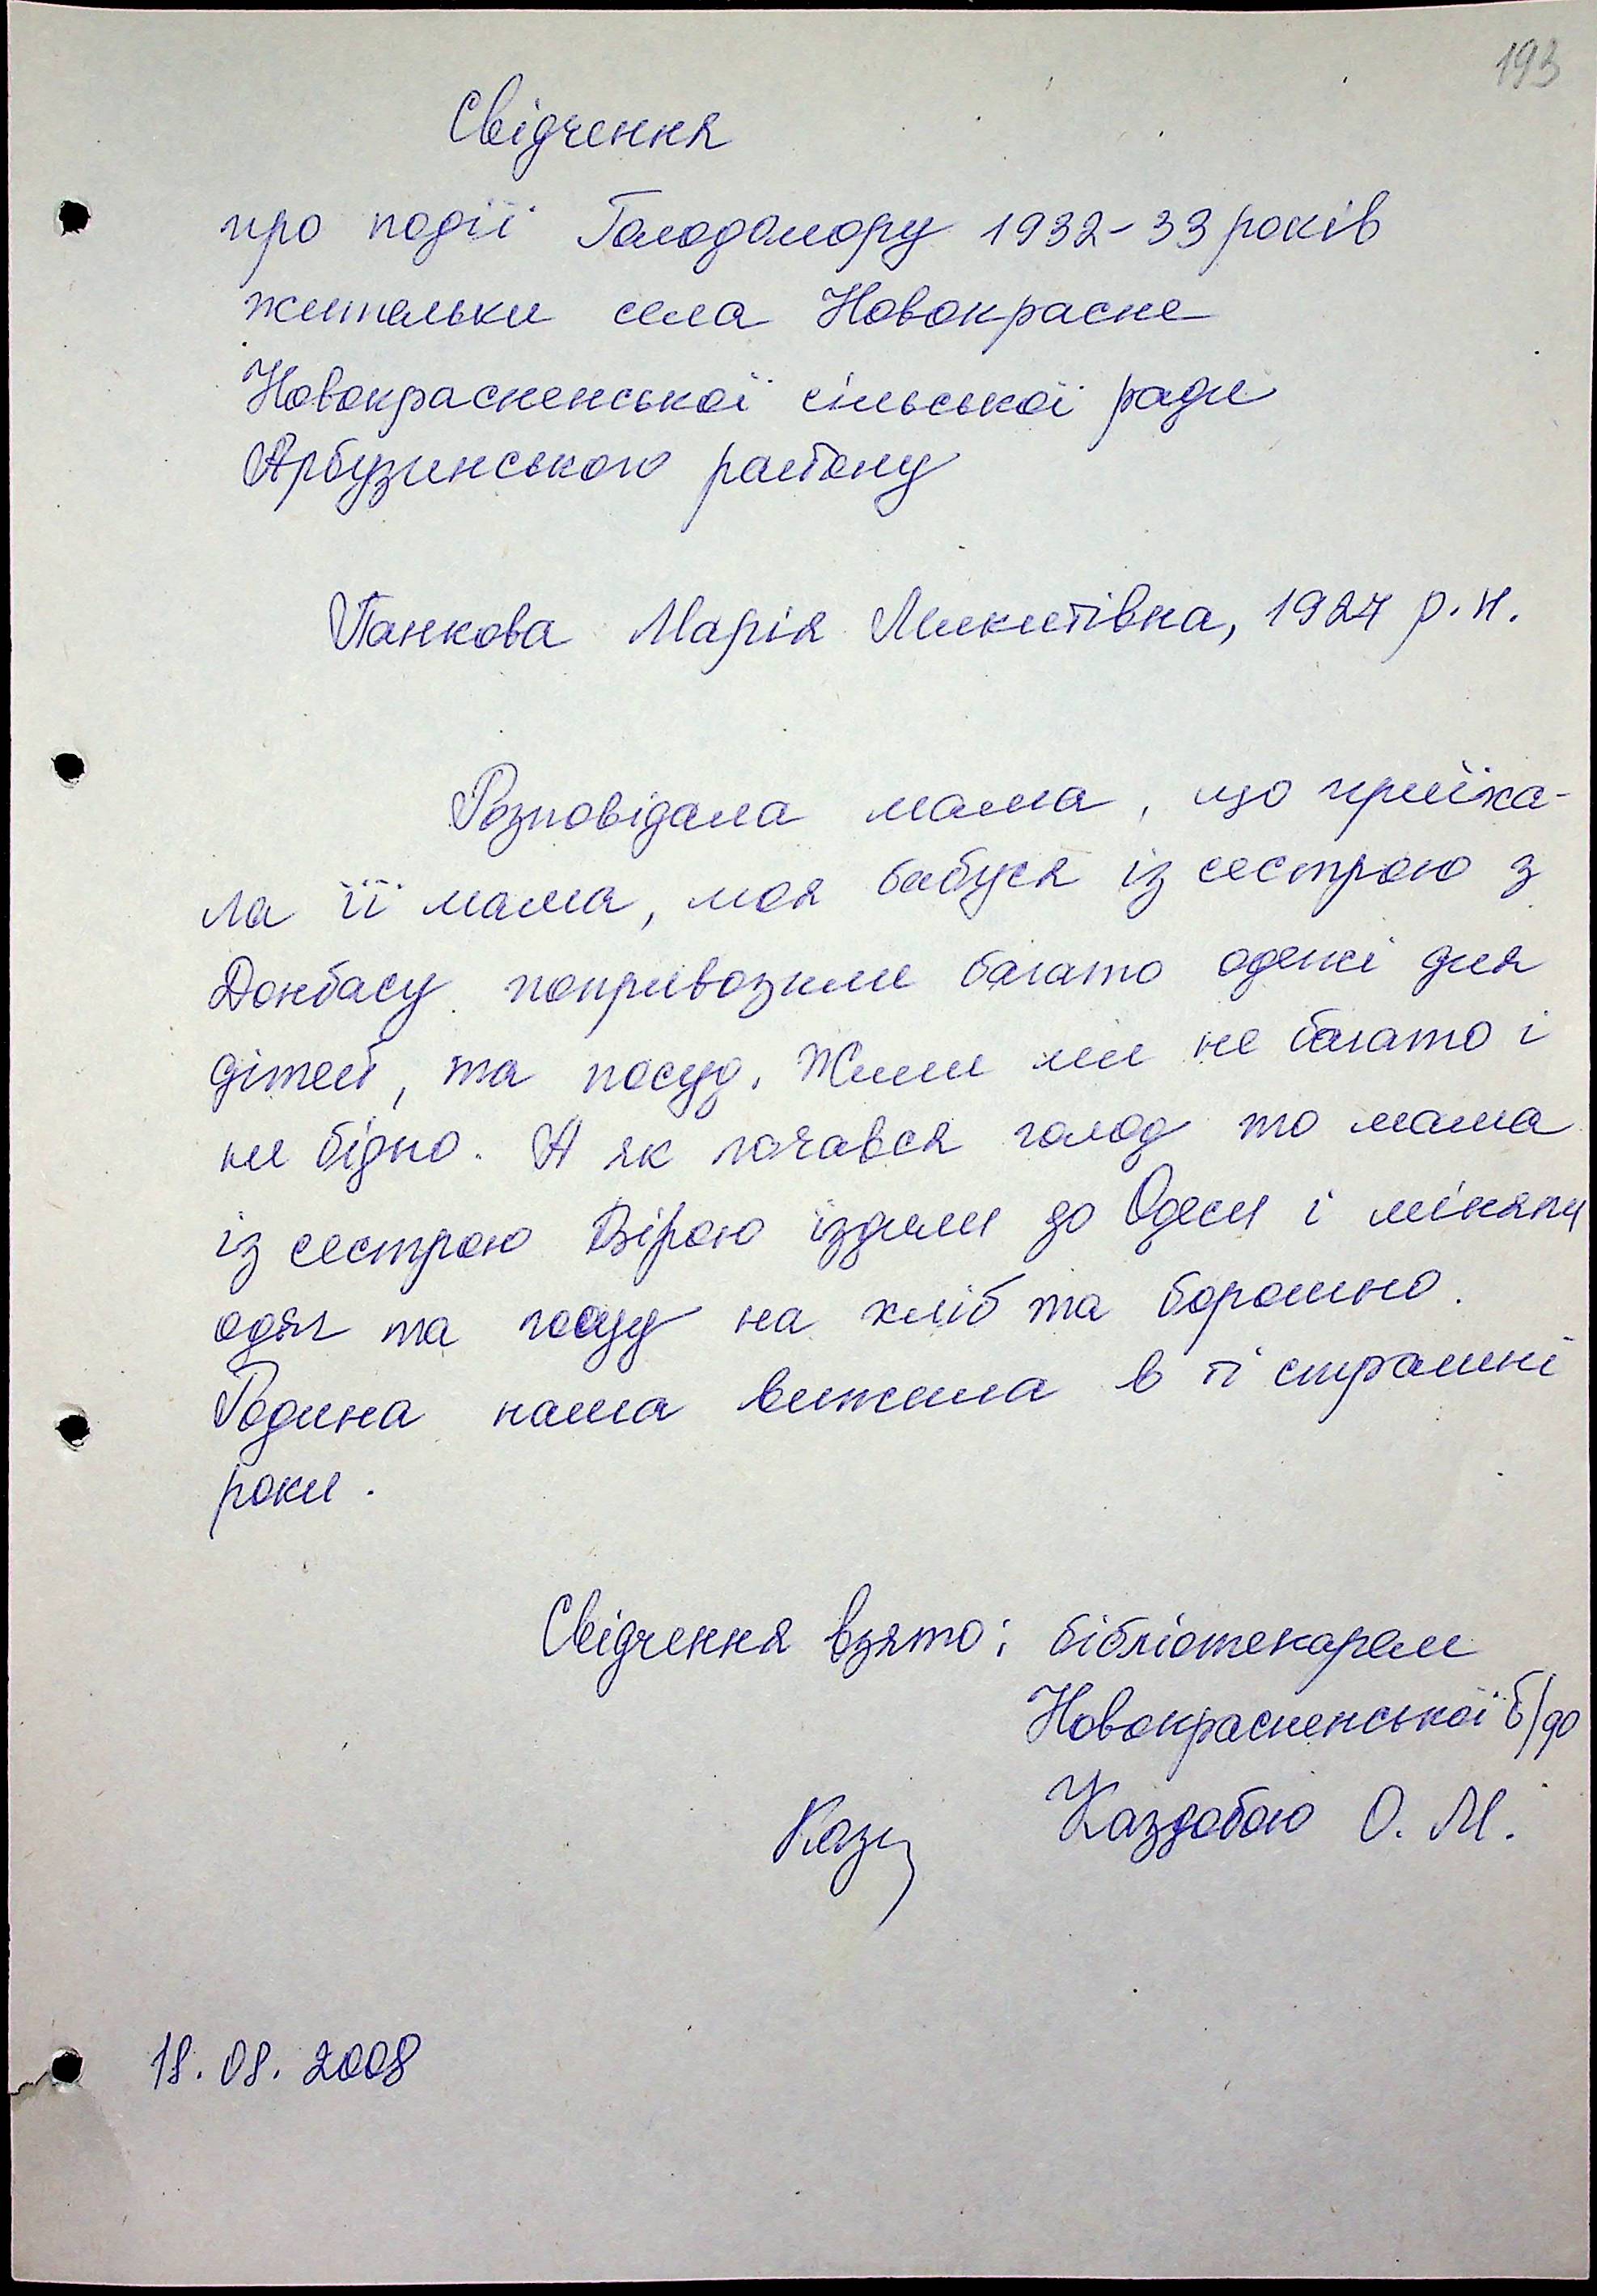 193
Свідчення
про події Голодомору 1932-33 років
жительки села Новокрасне
Новокрасненської сільської ради
Арбузинського району
Панкова Марія Микитівна, 1927 р.н.
Розповідала мама, що приїха-
ла її мама, моя бабуся із сестрою з
Донбасу попривозили багато одежі для
дітей, та посуд. Жили ми не багато і
не бідно. А як почався голод то мама
із сестрою Вірою їздили до Одеси і міняли
одяг та посуд на хліб та борошно.
Родина наша вижила в ті страшні
роки.
Свідчення взято: бібліотекарем
Новокрасненської б/ф
Каздобою О. М.
18.08.2008